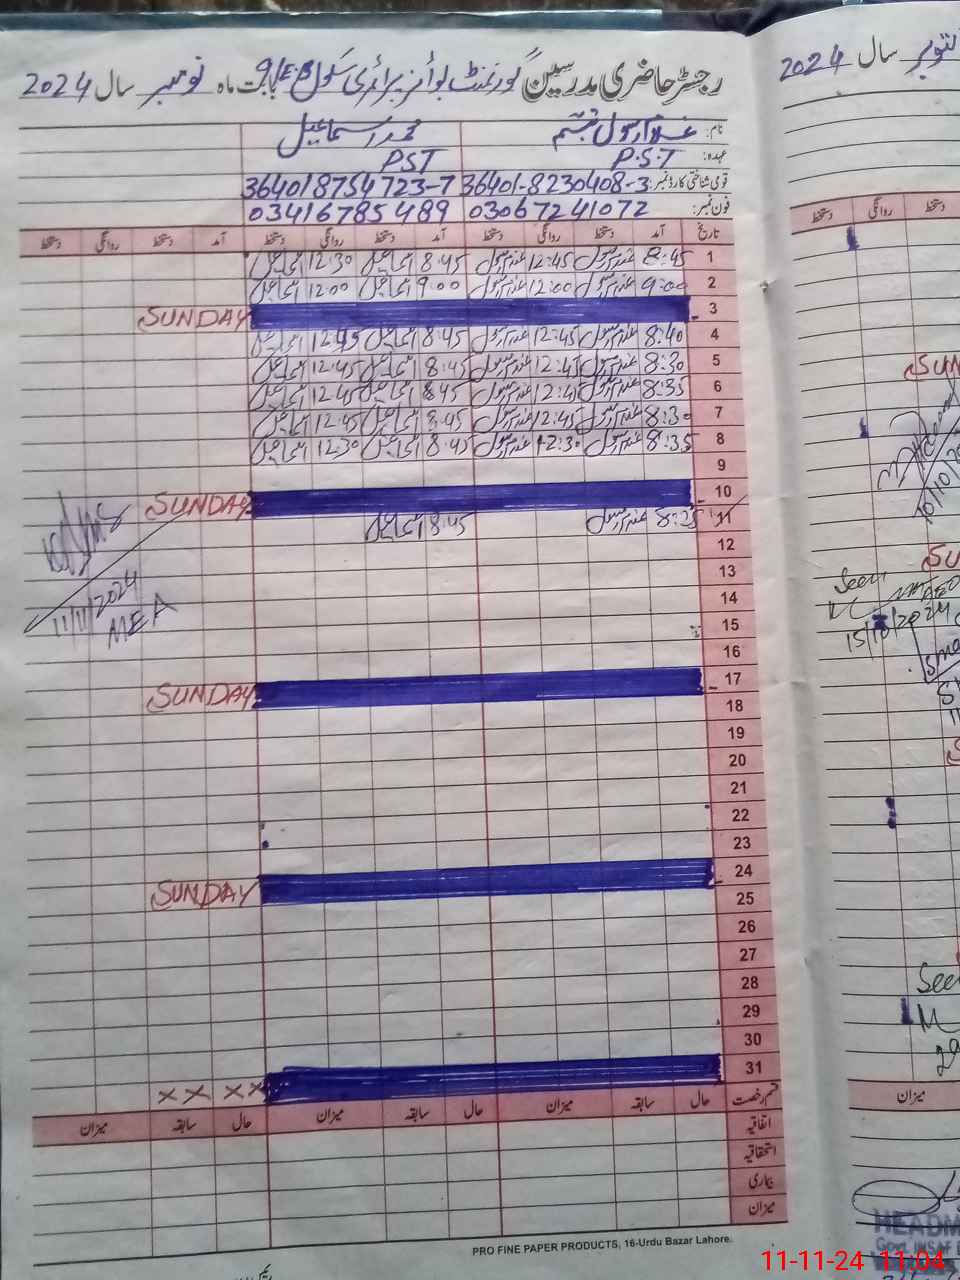 رجسٹر حاضری مدرسین گورنمنٹ بوائز پرائمری سکول 9/E.B بابت ماہ نومبر سال 2024
نام: غلام رسول تبسم محمد اسماعیل
عہدہ: P.S.T PST
قومی شناختی کارڈ نمبر: 36401-8230408-3 364018754723-7
فون نمبر: 03067241072 03416785489
تاریخ آمد دستخط روانگی دستخط آمد دستخط روانگی دستخط آمد دستخط روانگی دستخط
1 8:45 غلام رسول 12:45 غلام رسول 8:45 اسماعیل 12:30 اسماعیل
2 9:00 غلام رسول 12:00 غلام رسول 9:00 اسماعیل 12:00 اسماعیل
3 SUNDAY
4 8:40 غلام رسول 12:45 غلام رسول 8:45 اسماعیل 12:45 اسماعیل
5 8:30 غلام رسول 12:45 غلام رسول 8:45 اسماعیل 12:45 اسماعیل
6 8:35 غلام رسول 12:45 غلام رسول 8:45 اسماعیل 12:45 اسماعیل
7 8:30 غلام رسول 12:45 غلام رسول 8:45 اسماعیل 12:45 اسماعیل
8 8:35 غلام رسول 12:30 غلام رسول 8:45 اسماعیل 12:30 اسماعیل
9
10 SUNDAY
11 8:25 غلام رسول 8:45 اسماعیل
12
13
14
15
16
17 SUNDAY
18
19
20
21
22
23
24 SUNDAY
25
26
27
28
29
30
31
11/11/2024
MEA
قسم رخصت حال سابقہ میزان حال سابقہ میزان حال سابقہ میزان
اتفاقیہ
استحقاقیہ
بیماری
میزان
PRO FINE PAPER PRODUCTS, 16-Urdu Bazar Lahore.
اکتوبر سال 2024
دستخط روانگی دستخط
SUN
10/10/20
SU
Seen
AEO
15/10/2024
See
میزان
HEADM
Govt.
11-11-24 11:04